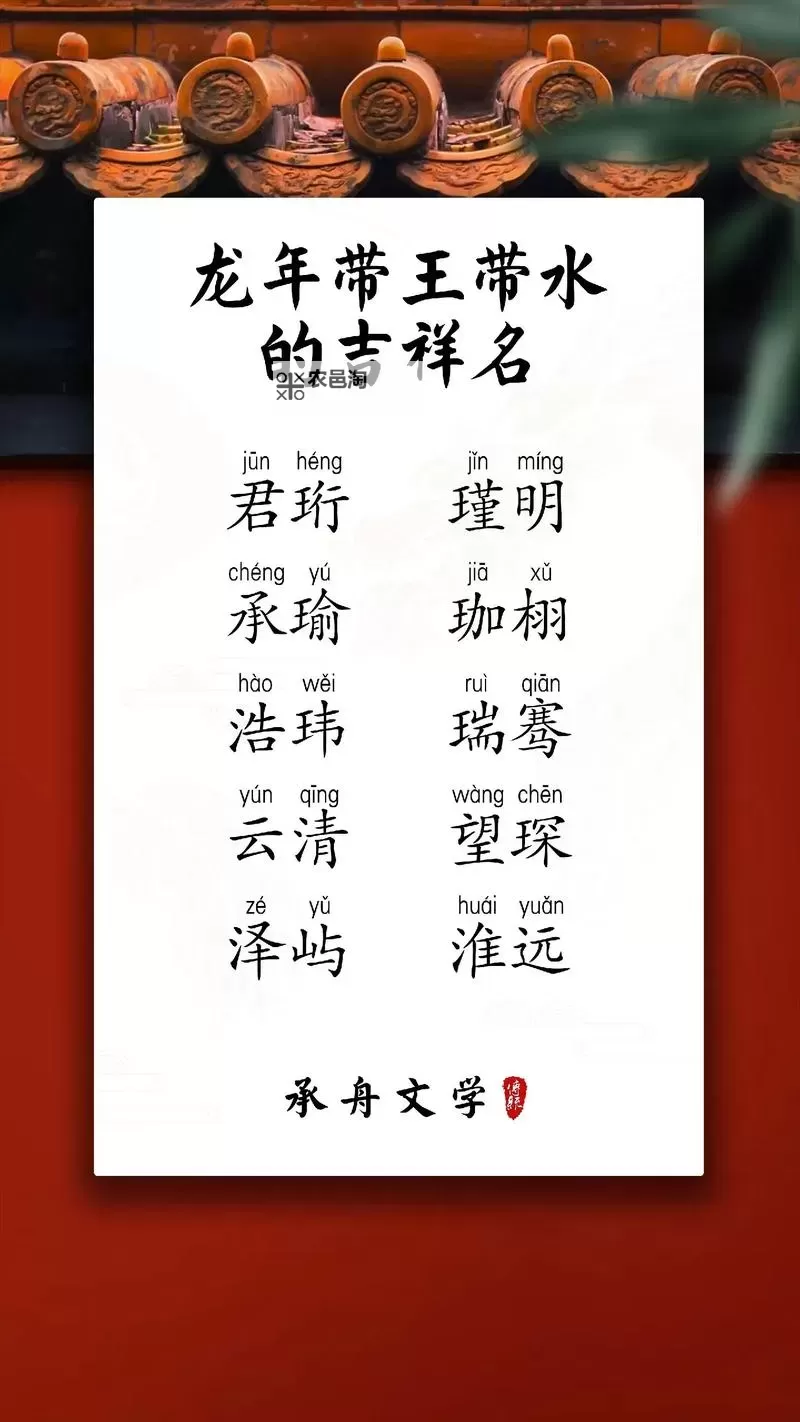 龙年带王带水
的吉祥名
农邑淘
jūn héng jǐn míng
君珩 瑾明
chéng yú jiā xǔ
承瑜 珈栩
hào wěi ruì qiān
浩玮 瑞骞
yún qīng wàng chēn
云清 望琛
zé yǔ huái yuǎn
泽屿 淮远
承舟文学